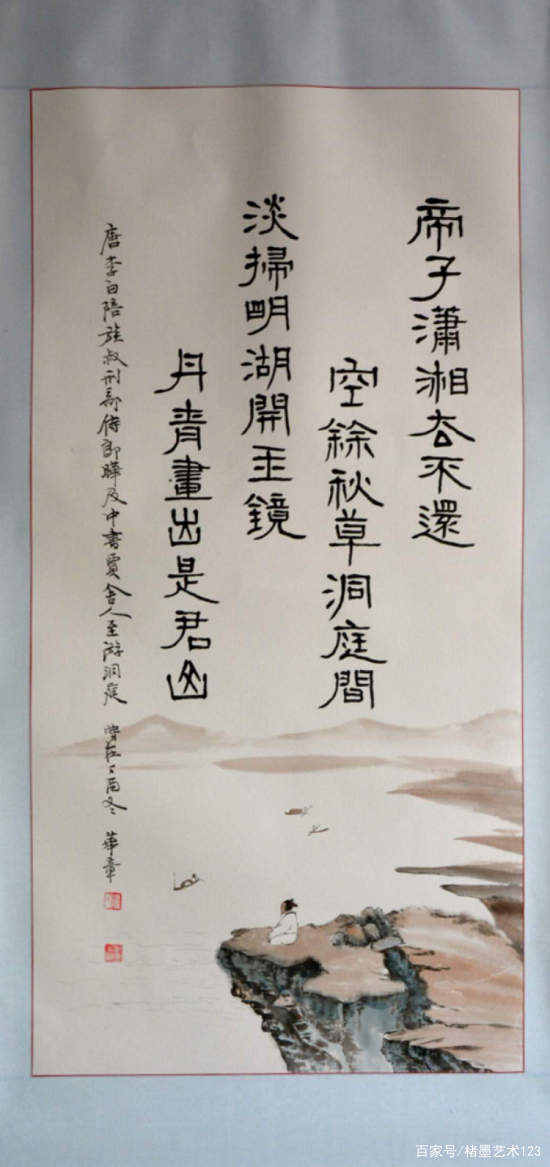 帝子瀟湘去不還
空餘秋草洞庭間
淡掃明湖開玉鏡
丹青畫出是君山
唐李白陪族叔刑部侍郎曄及中書賈舍人至游洞庭 時在丁酉冬 華章
百家号/楮墨艺术123